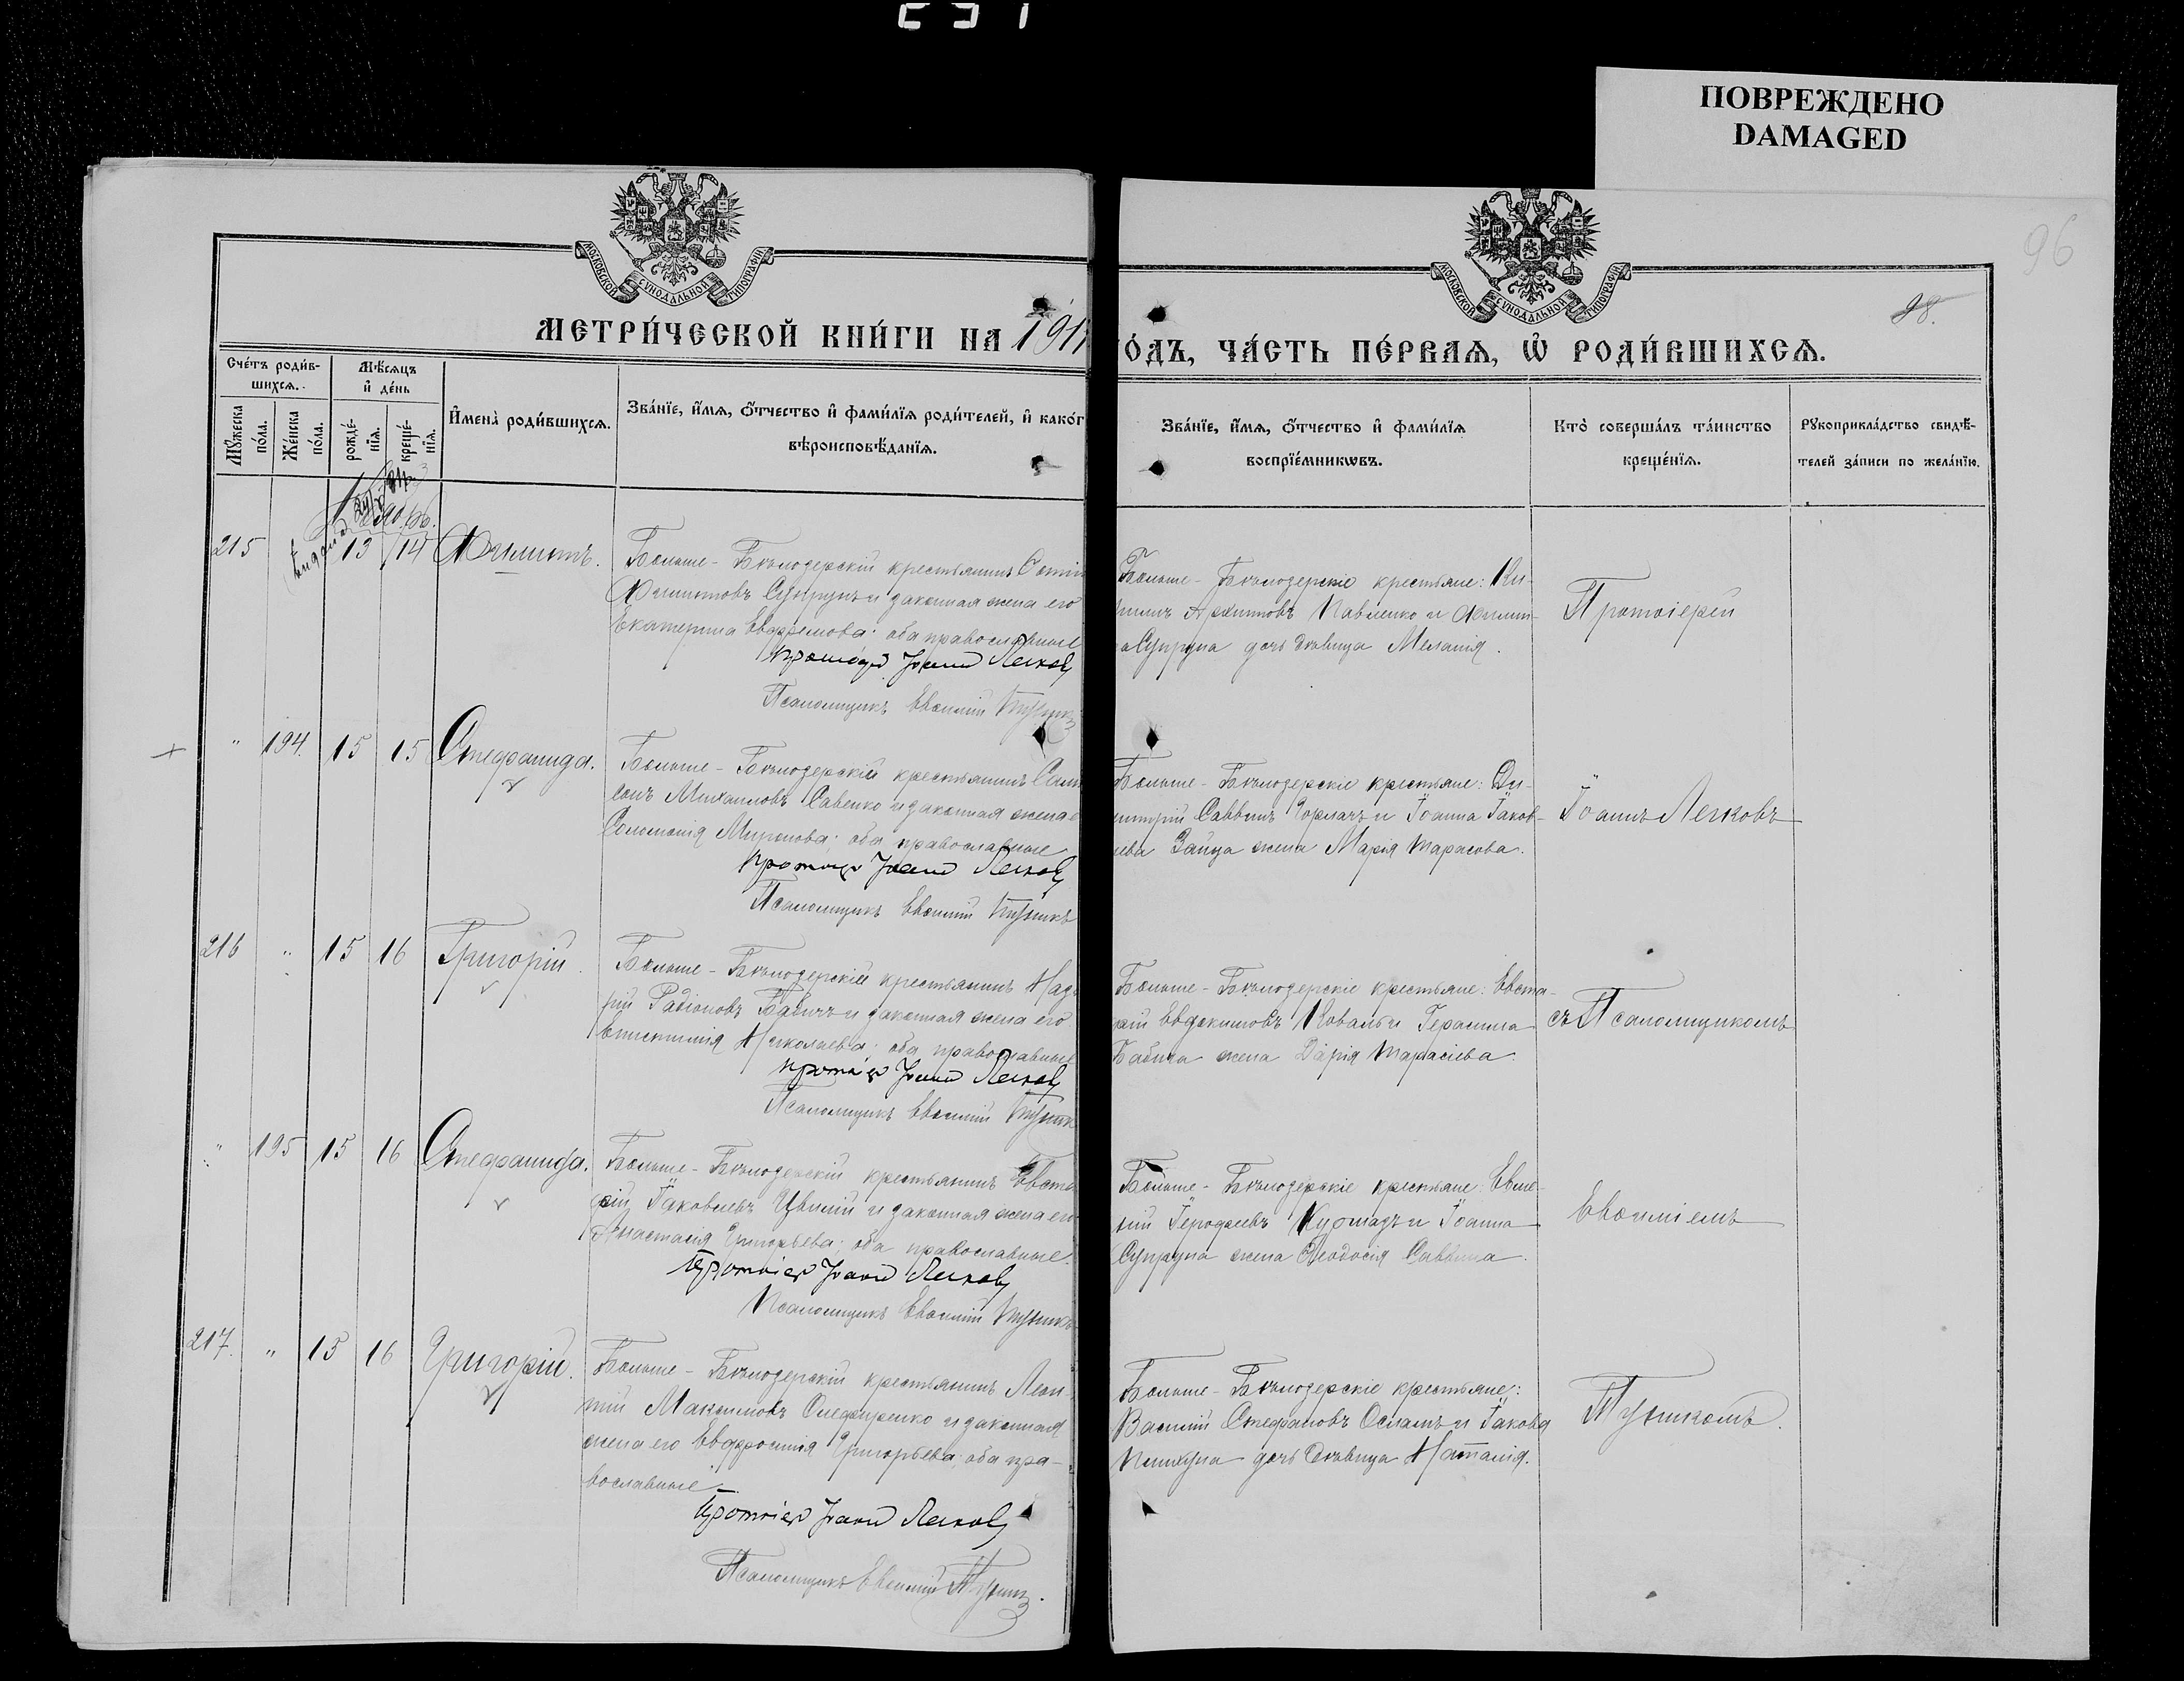 ПОВРЕЖДЕНО
DAMAGED
96
98.
МОСКОВСКОЙ СѴНОДАЛЬНОЙ ТИПОГРАФІИ
МОСКОВСКОЙ СѴНОДАЛЬНОЙ ТИПОГРАФІИ
МЕТРИ́ЧЕСКОЙ КНИ́ГИ НА 191
О́ДЪ, ЧА́СТЬ ПЕ́РВАЯ, Ѡ҆ РОДИ́ВШИХСЯ.
Сче́тъ роди́в-
шихся.
Мѣ́сяцъ
и҆ де́нь
Мꙋ́жеска
по́ла.
Же́нска
по́ла.
рожде́-
нїя.
креще́-
нїя.
И҆мена̀ роди́вшихся.
Зва́нїе, и҆́мя, ѻ҆́тчество и҆ фами́лїя роди́телей, и҆ како́г
вѣроисповѣ́данїя.
Зва́нїе, и҆́мя, ѻ҆́тчество и҆ фами́лїя
воспрїе́мникѡвъ.
Кто̀ соверша́лъ та́инство
креще́нїя.
Рꙋкоприкла́дство свидѣ́-
телей за́писи по жела́нїю.
215
13
14
Филиппъ.
Больше-Бѣлозерскій крестьянинъ
Филипповъ Супрунъ и законная жена его
Екатерина Евфремова; оба православные
Іоаннъ Легковъ
Псаломщикъ Евѳимій
Больше-Бѣлозерскіе крестьяне: Ки-
риллъ Архипповъ Павленко и Филип-
а Супруна дочь дѣвица Меланія.
Протоіерей
" 194. 15 15 Стефанида.
Больше-Бѣлозерскій крестьянинъ Сам
сонъ Михаиловъ Савенко и законная жена е
Соломонія Миронова; оба православные
Іоаннъ Легковъ
Псаломщикъ Евѳимій
Больше-Бѣлозерскіе крестьяне: Ди-
митрій Саввинъ Горлачъ и Іоанна Іаков-
лева Зайца жена Марія Тарасова.
Іоаннъ Легковъ
216 " 15 16 Григорій
Больше-Бѣлозерскій крестьянинъ Наза
рій Радіоновъ Бабичъ и законная жена его
Епистимія Николаева; оба православные
Іоаннъ Легковъ
Псаломщикъ Евѳимій
Больше-Бѣлозерскіе крестьяне: Евста-
фій Евдокимовъ Коваль и Герасима
Бабича жена Дарія Тарасіева.
съ Псаломщикомъ
" 195 15 16 Стефанида.
Больше-Бѣлозерскій крестьянинъ Евста
фій Іаковлевъ Цвилій и законная жена его
Анастасія Григорьева; оба православные.
Протоіерей Іоаннъ Легковъ
Псаломщикъ Евѳимій
Больше-Бѣлозерскіе крестьяне: Евме-
ній Іероѳеевъ и Іоанна
Супруна жена Ѳеодосія Саввина.
Евѳиміемъ
217. " 15 16 Григорій.
Больше-Бѣлозерскій крестьянинъ Леон-
тій Максимовъ Олефиренко и законная
жена его Евфросинія Григорьева; оба пра-
вославные.
Протоіерей Іоаннъ Легковъ
Псаломщикъ Евѳимій
Больше-Бѣлозерскіе крестьяне:
Василій Стефановъ Ослапъ и Іакова
Пшихуна дочь дѣвица Наталія.